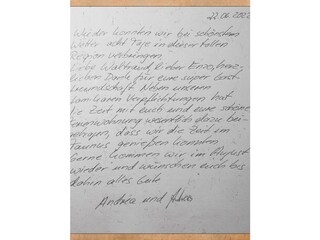 22.06.2022
Wieder konnten wir bei schönstem
Wetter acht Tage in dieser tollen
Region verbringen.
Liebe Waltraud, lieber Enzo, herz-
lichen Dank für eure super Gast-
freundschaft. Neben unseren
familiären Verpflichtungen hat
die Zeit mit euch und eine schöne
Ferienwohnung wesentlich dazu bei-
getragen, dass wir die Zeit im
Taunus genießen konnten.
Gerne kommen wir im August
wieder und wünschen euch bis
dahin alles Gute
Andrea und